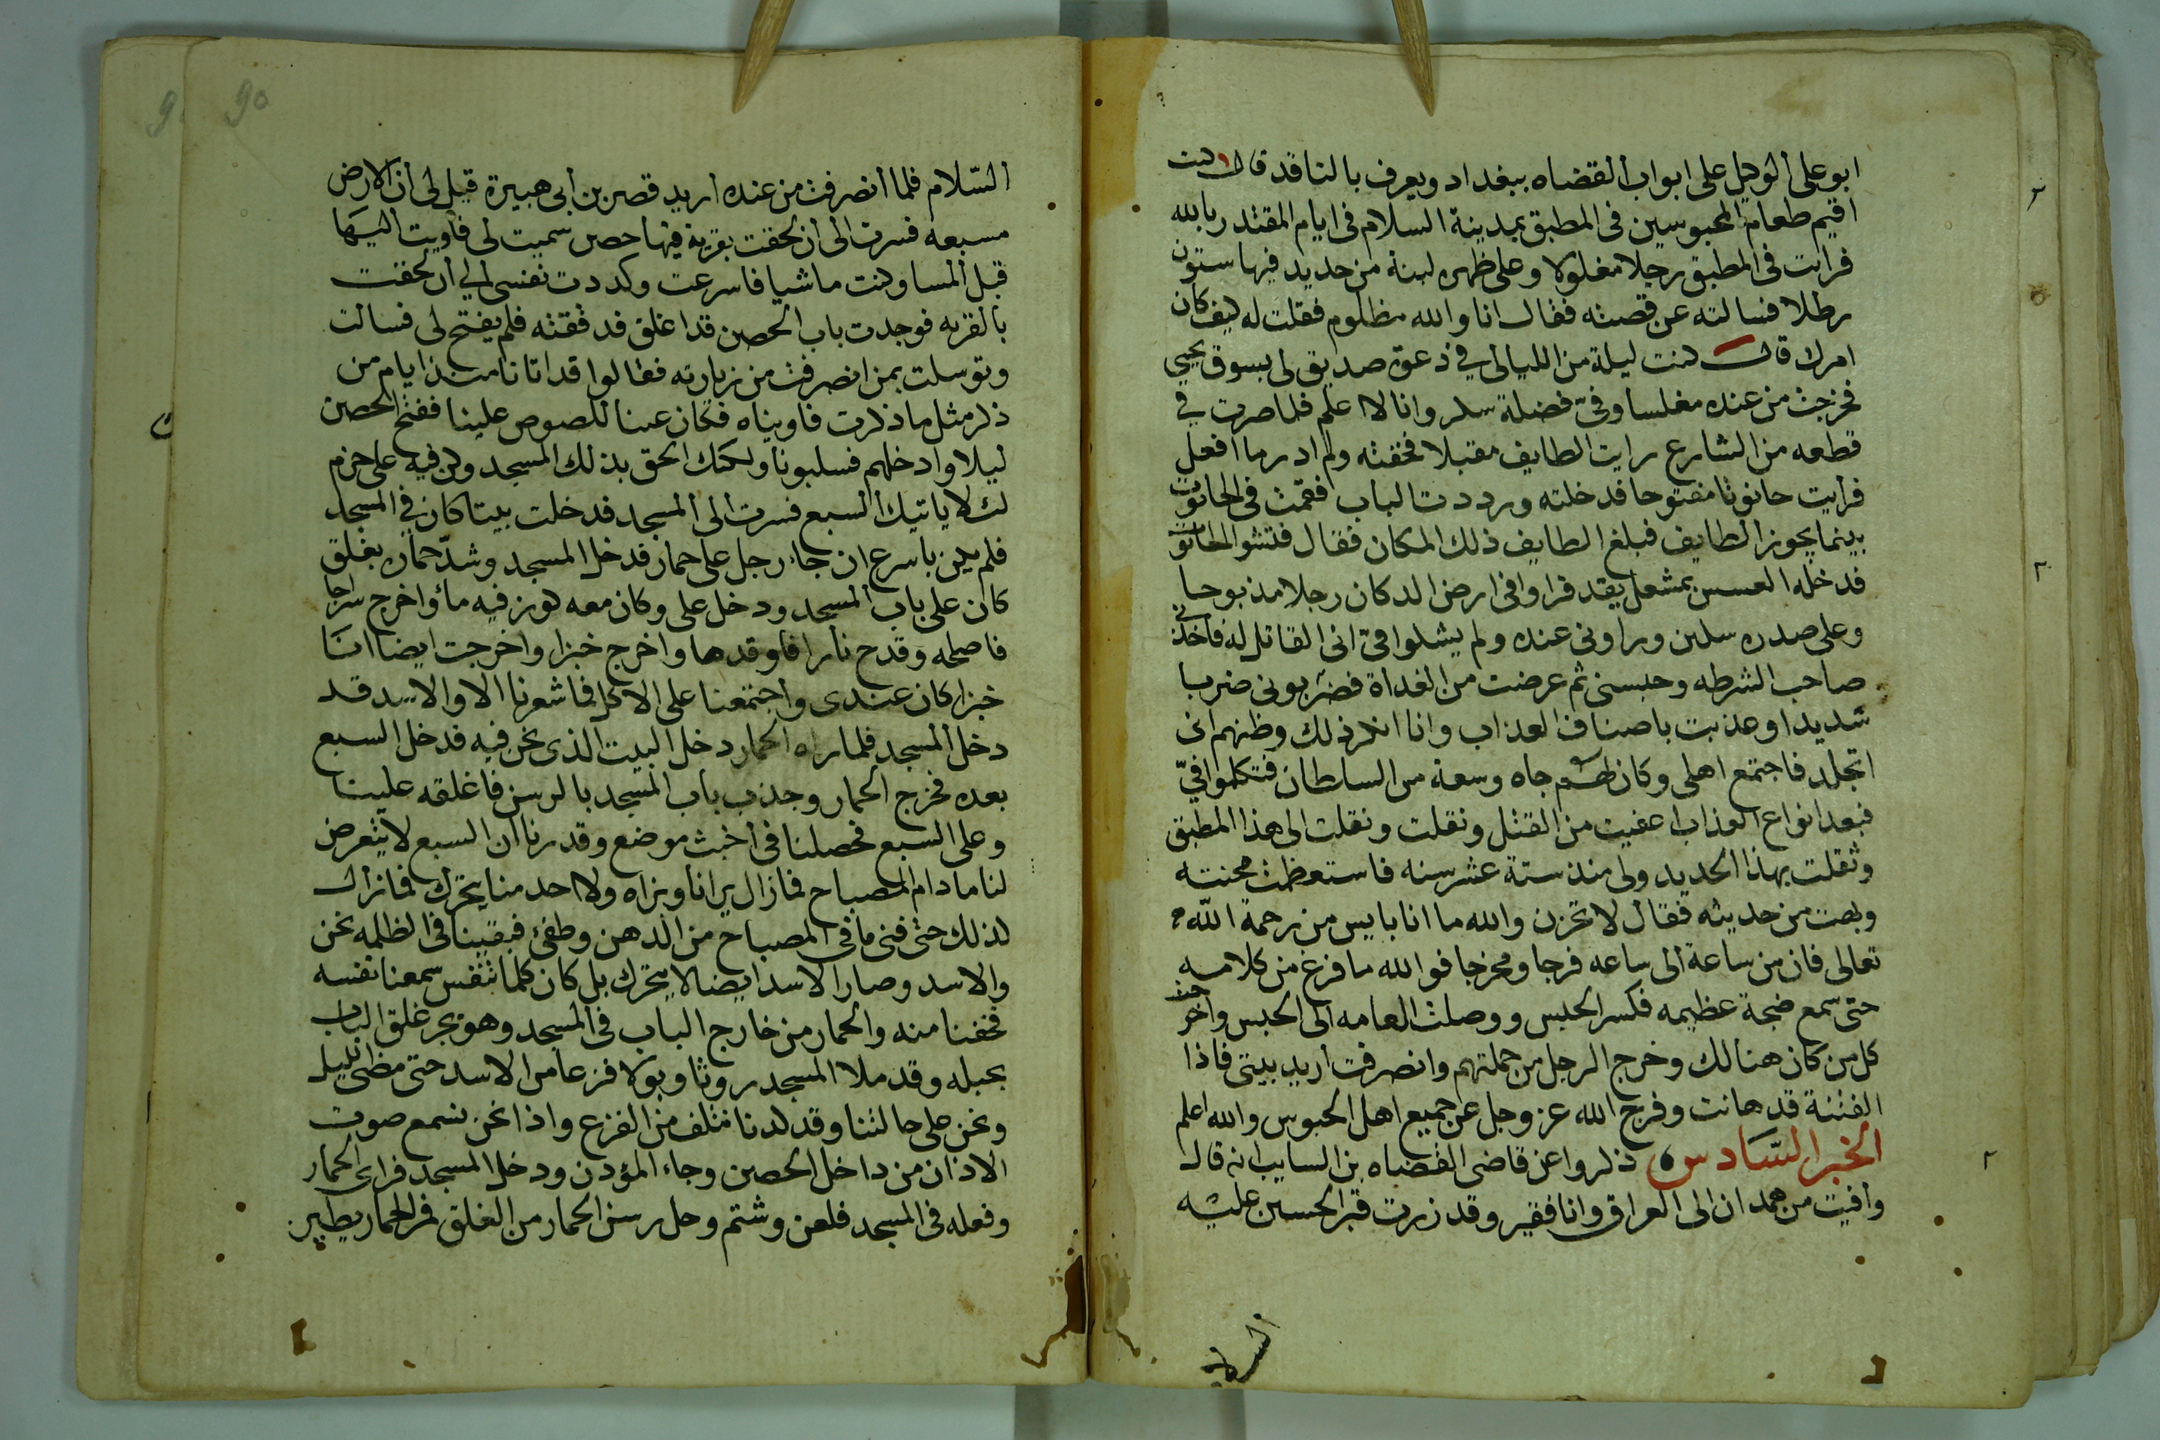 ابو على الوكيل على ابواب القضاه ببغداد ويعرف بالناقد قال كنت
اقيم طعام المحبوسين فى المطبق بمدينة السلام فى ايام المقتدر بالله
فرايت فى المطبق رجلا مغلولا وعلى ظهره لبنة من حديد فيها ستون
رطلا فسالته عن قصته فقال انا والله مظلوم فقلت له كيف كان
امرك قال كنت ليلة من الليالى في دعوة صديق لى بسوق يحيي
فخرجت من عنده مغلسا وفيّ فضلة سكر وانا لا اعلم فلما صرت في
قطعه من الشارع رايت الطايف مقبلا فخفته ولم ادر ما افعل
فرأيت حانوتا مفتوحا فدخلته ورددت الباب فقمت فى الحانوت
بينما يجوز الطايف فبلغ الطايف ذلك المكان فقال فتشوا الحانوت
فدخله العسس بمشعل يقد فراوا فى ارض الدكان رجلا مذبوحا
وعلى صدره سكين وراونى عنده ولم يشكوا فيّ انى القاتل له فاخذنى
صاحب الشرطه وحبسنى ثم عرضت من الغداة فضربونى ضربا
شديدا وعذبت باصناف العذاب وانا انكر ذلك وظنهم انى
اتجلد فاجتمع اهلى وكان لهم جاه وسعة من السلطان فتكلموا فيّ
فبعد انواع العذاب اعفيت من القتل ونقلت ونقلت الى هذا المطبق
وثقلت بهذا الحديد ولى منذ ستة عشر سنه فاستعظمت محنته
وبهت من حديثه فقال لا تحزن والله ما انا بايس من رحمة الله
تعالى فان من ساعة الى ساعه فرجا ومخرجا فوالله ما فرغ من كلامه
حتى سمع ضجة عظيمه فكسر الحبس ووصلت العامه الى الحبس واخرجت
كل من كان هنالك وخرج الرجل من جملتهم وانصرفت اريد بيتى فاذا
الفتنة قد هانت وفرج الله عز وجل عن جميع اهل الحبوس والله اعلم
الخبر السّادس ذكروا عن قاضى القضاه بن السايب انه قال
وافيت من همدان الى العراق وانا فقير وقد زرت قبر الحسين عليه
السلام
90
السّلام فلما انصرفت من عنده اريد قصر بن أبى هبيرة قيل لى ان الارض
مسبعه فسرت الى ان لحقت بقرية فيها حصن سميت لى فأويت اليها
قبل المسا وكنت ماشيا فاسرعت وكددت نفسى الي ان لحقت
بالقريه فوجدت باب الحصن قد اغلق فدققته فلم يفتح لى فسالت
وتوسلت بمن انصرفت من زيارته فقالوا قد اتانا منذ ايام من
ذكر مثل ما ذكرت فاويناه فكان عينا للصوص علينا ففتح الحصن
ليلا وادخلهم فسلبونا ولكنك الحق بذلك المسجد وكن فيه على حزم
لك لا ياتيك السبع فسرت الى المسجد فدخلت بيتا كان في المسجد
فلم يكن باسرع ان جاء رجل على حمار فدخل المسجد وشدّ حماره بغلق
كان على باب المسجد ودخل على وكان معه كوز فيه ماء واخرج سراجا
فاصلحه وقدح نارا فاوقدها واخرج خبزا واخرجت ايضا انا
خبزا كان عندى واجتمعنا على الاكل فما شعرنا الا والاسد قد
دخل المسجد فلما راه الحمار دخل البيت الذى نحن فيه فدخل السبع
بعده فخرج الحمار وجذب باب المسجد بالرسن فاغلقه علينا
وعلى السبع فحصلنا فى اخبث موضع وقدرنا ان السبع لا يتعرض
لنا ما دام المصباح فما زال يرانا ونراه ولا احد منا يتحرك فما زال
لذلك حتى فنى ما في المصباح من الدهن وطفئ فبقينا فى الظلمه نحن
والاسد وصار الاسد ايضا لا يتحرك بل كان كلما تنفس سمعنا نفسه
فخفنا منه والحمار من خارج الباب فى المسجد وهو يجر غلق الباب
بحبله وقد ملا المسجد روثا وبولا فزعا من الاسد حتى مضى الليل
ونحن على حالتنا وقد كدنا نتلف من الفزع واذا نحن نسمع صوت
الاذان من داخل الحصن وجاء المؤذن ودخل المسجد فراى الحمار
وفعله فى المسجد فلعن وشتم وحل رسن الحمار من الغلق فمر الحمار يطير